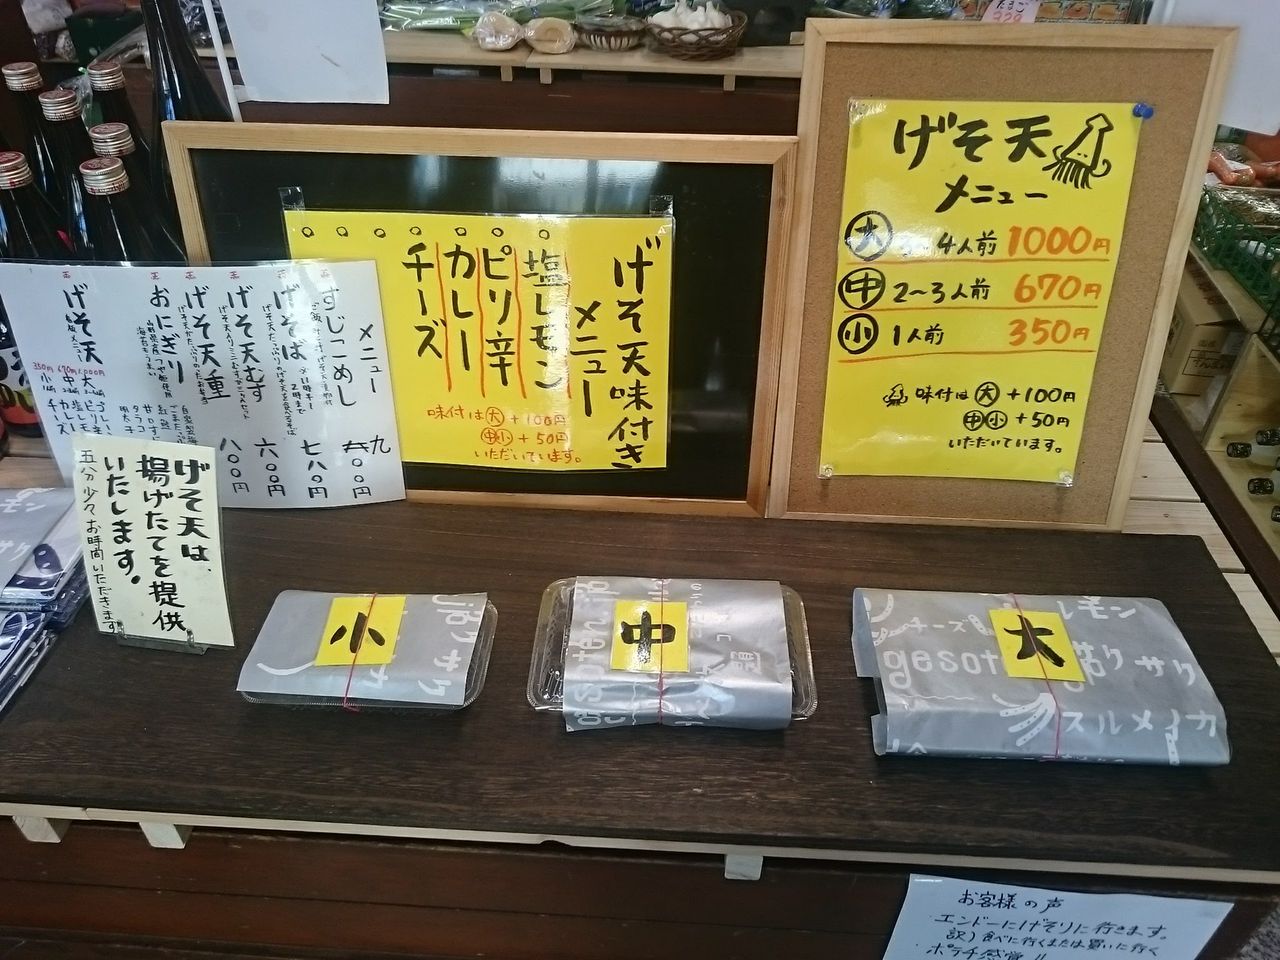 げそ天
メニュー
大 3〜4人前 1000円
中 2〜3人前 670円
小 1人前 350円
味付は大 +100円
中小 +50円
いただいています。
げそ天味付き
メニュー
塩レモン
ピリ辛
カレー
チーズ
味付は大 +100円
中小 +50円
いただいています。
メニュー
すじこめし
九〇〇円
げそば
七八〇円
げそ天むす
六〇〇円
げそ天重
八〇〇円
おにぎり
げそ天
1,000円 大
670円 中
350円 小
げそ天は、
揚げたてを提供
いたします。
五分少々お時間いただきます
小
中
大
gesot
チーズ
レモン
サクサク
スルメイカ
お客様の声
エンドーにげそりに行きます。
訳)食べに行くまたは買いに行く
ポテチ感覚!!